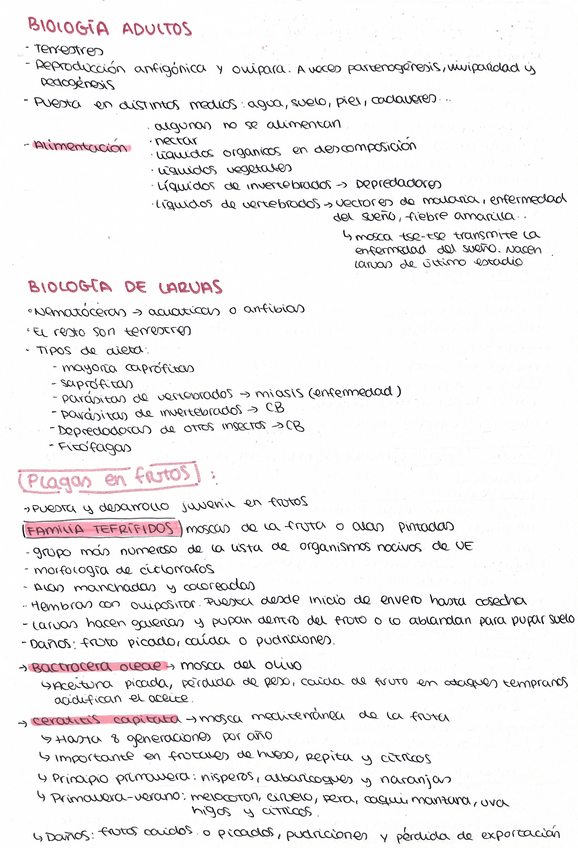 BIOLOGÍA ADULTOS
- Terrestres
- Reproducción anfigónica y ovipara. A veces partenogénesis, viviparidad y
pedogénesis
- Puesta en distintos medios: agua, suelo, piel, cadaveres...
- Alimentación
· algunas no se alimentan
· nectar
· líquidos organicos en descomposición
· líquidos vegetales
· Líquidos de invertebrados → Depredadores
· líquidos de vertebrados → vectores de malaria, enfermedad
del sueño, fiebre amarilla..
↳ mosca tse-tse transmite la
enfermedad del sueño. Nacen
larvas de último estadio
BIOLOGÍA DE LARVAS
· Nematóceras → acuaticas o anfibias
· El resto son terrestres
· Tipos de dieta:
- mayoría caprófitas
- saprófitas
- parásitas de vertebrados → miasis (enfermedad)
- parásitas de invertebrados → CB
- Depredadoras de otros insectos → CB
- Fitófagas
Plagas en frutos :
→ Puesta y desarrollo juvenil en frutos
FAMILIA TEFRÍFIDOS moscas de la fruta o alas pintadas
- grupo más numeroso de la lista de organismos nocivos de UE
- morfología de ciclorrafos
- Alas manchadas y coloreadas
- Hembras con ovipositor. Puesta desde inicio de envero hasta cosecha
- Larvas hacen galerías y pupan dentro del fruto o lo ablandan para pupar suelo
- Daños: fruto picado, caída o pudriciones.
→ Bactrocera oleae → mosca del olivo
↳ Aceituna picada, pérdida de peso, caída de fruto en ataques tempranos
acidifican el aceite.
→ Ceratitis capitata → mosca mediterránea de la fruta
↳ Hasta 8 generaciones por año
↳ Importante en frutales de hueso, pepita y cítricos
↳ Principio primavera: nísperos, albaricoques y naranjas
↳ Primavera-verano: melocoton, ciruelo, pera, caqui, manzana, uva
higos y cítricos.
↳ Daños: frutos caidos o picados, pudriciones y pérdida de exportación